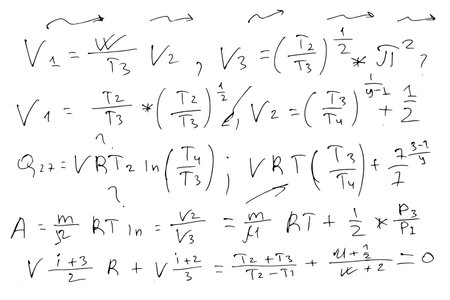 V₁ = W/T₃ V₂ , V₃ = (T₂/T₃)^(1/2) * π² ?
V₁ = T₂/T₃ * (T₂/T₃)^(1/2) , V₂ = (T₃/T₄)^(1/(y-1)) + 1/2
Q₂₇ = VRT₂ ln(T₄/T₃) ; VRT(T₃/T₄) + 7/7^((3-2)/y)
A = m/μ RT ln = V₂/V₃ = m/μ RT + 1/2 * P₃/P₁
V (i+3)/2 R + V (i+2)/3 = (T₂+T₃)/(T₂-T₁) + = 0